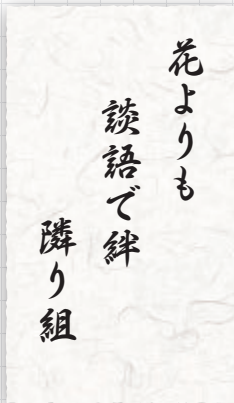 花よりも
談語で絆
隣り組